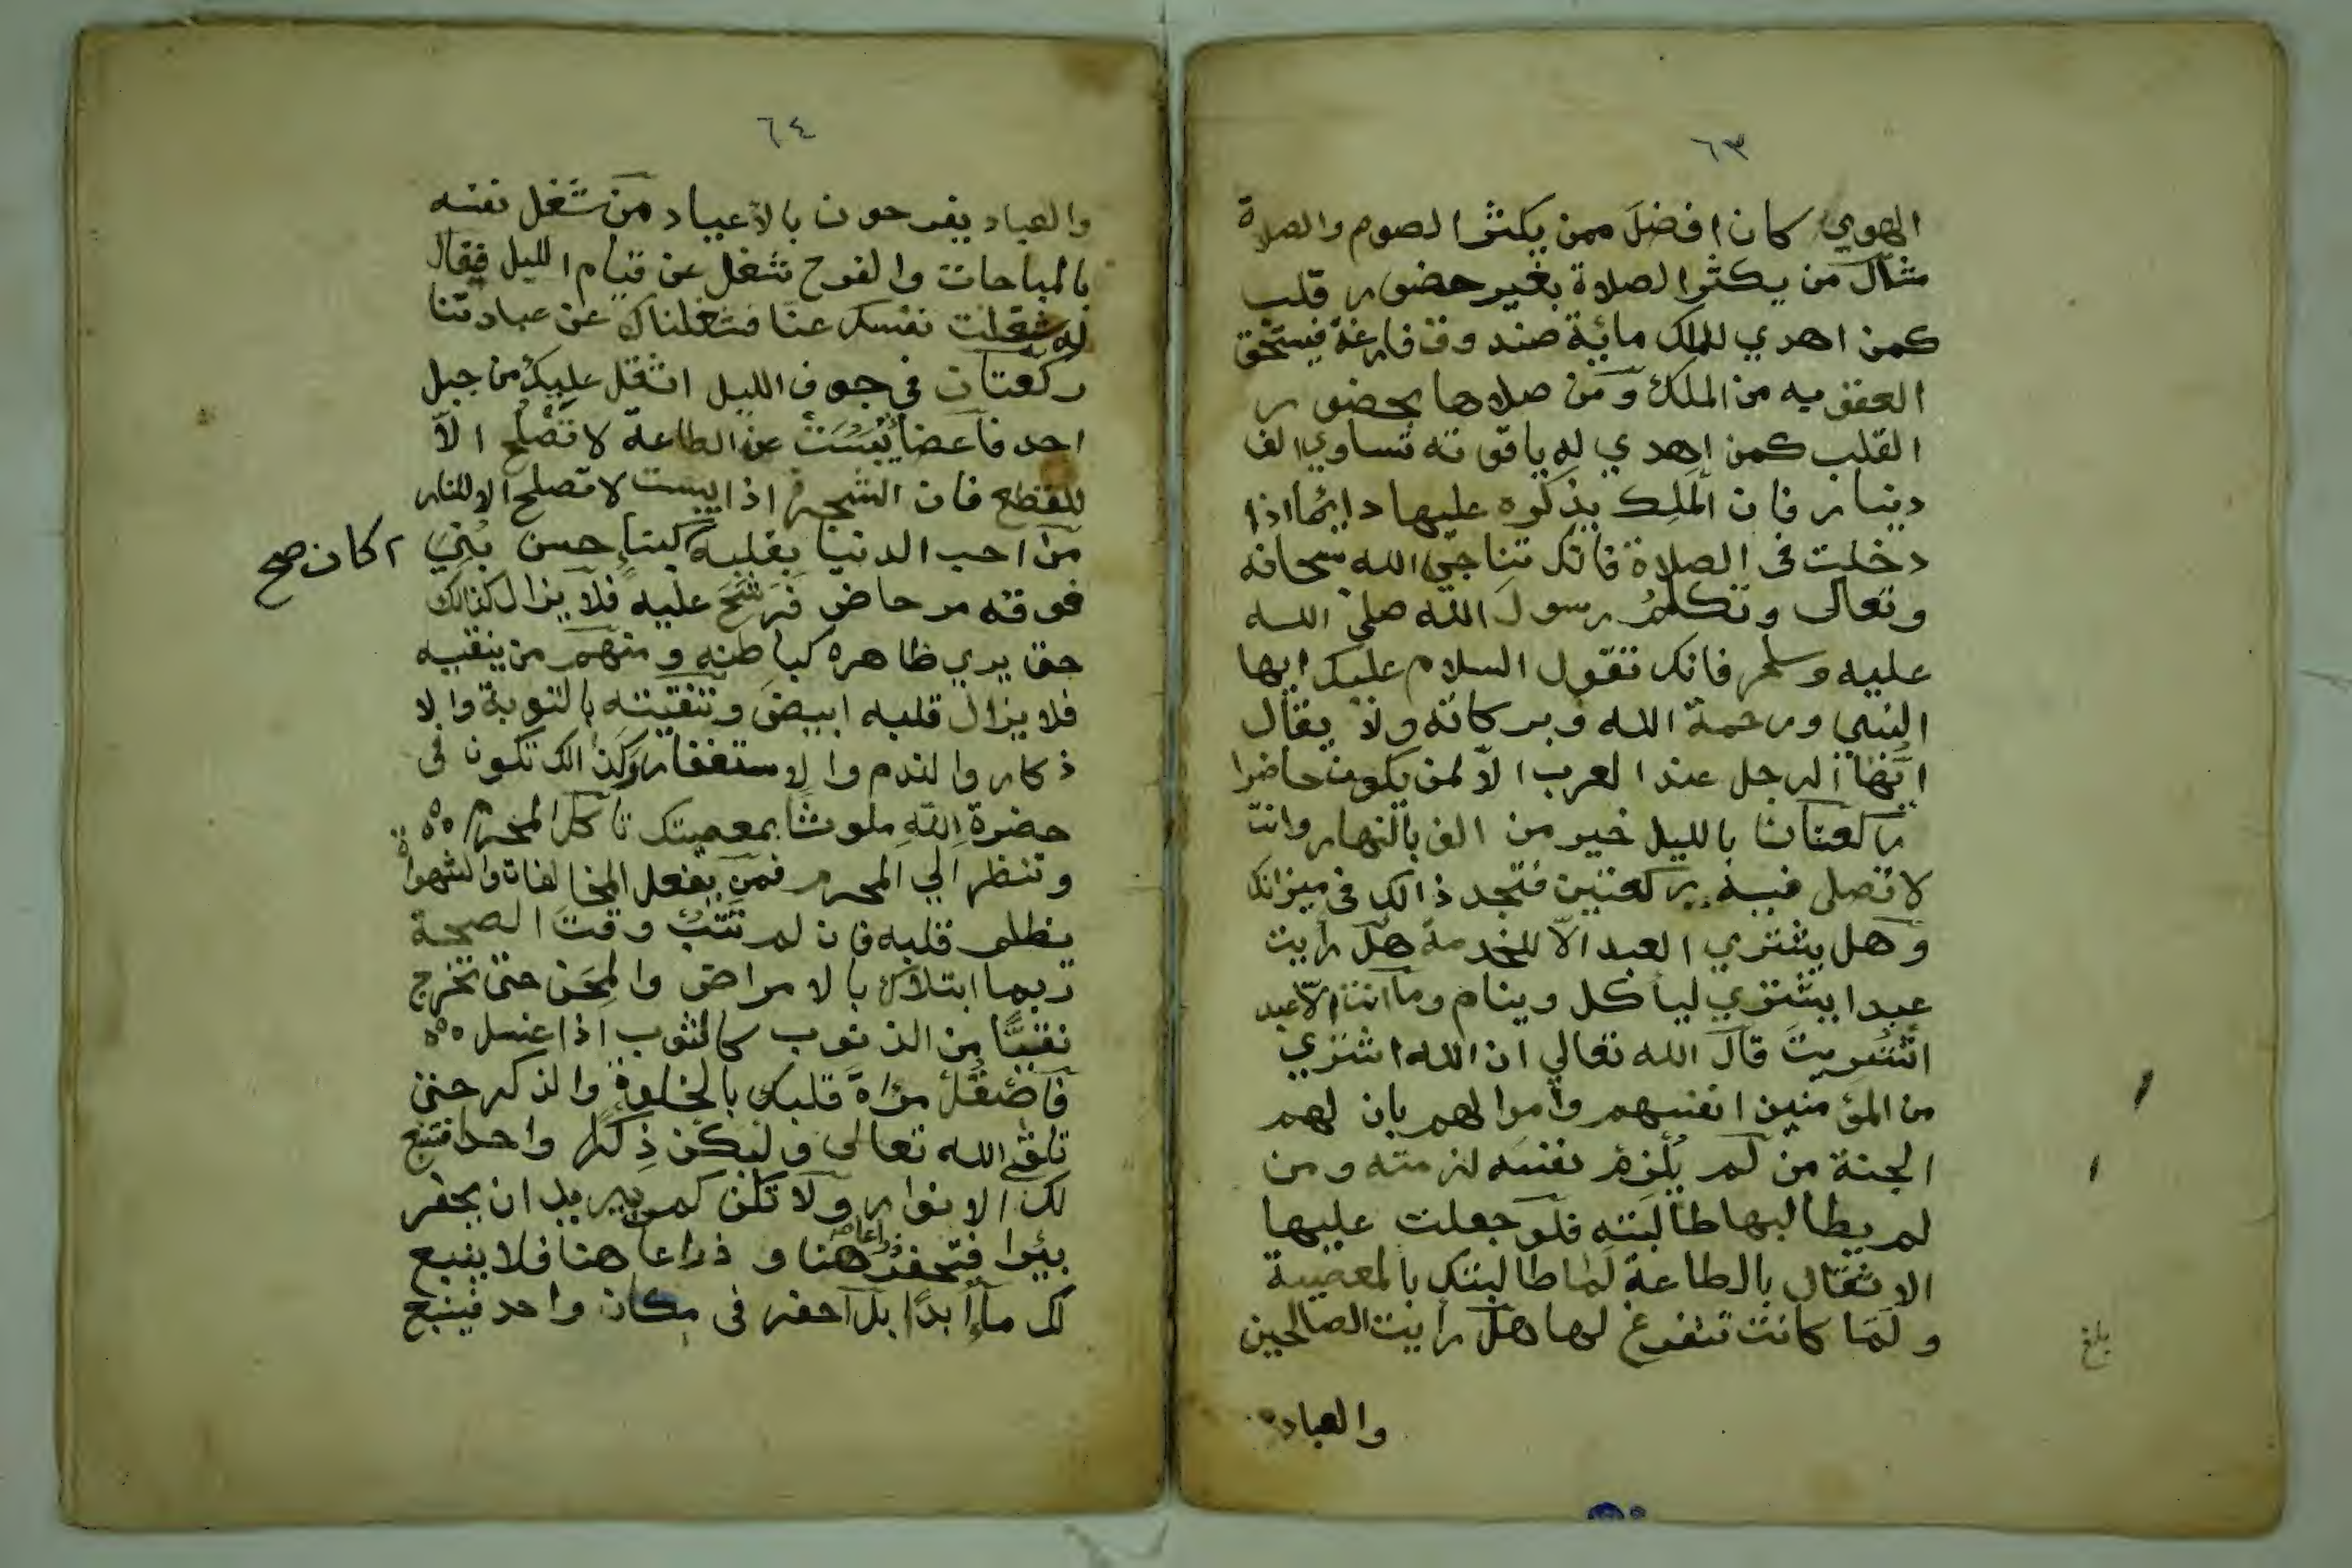 ٦٣
الهوي كان افضل ممن يكثر الصوم والصلاة
مثال من يكثر الصلاة بغير حضور قلب
كمن اهدي للملك مائة صندوق فارغة فيستحق
العقوبه من الملك ومن صلاها بحضور
القلب كمن اهدي له ياقوته تساوي الف
دينار فان الملك يذكره عليها دائما اذا
دخلت في الصلاة فانك تناجي الله سبحانه
وتعالى وتكلم رسول الله صلي الله
عليه وسلم فانك تقول السلام عليك ايها
النبي ورحمة الله وبركاته ولا يقال
ايها الرجل عند العرب الا لمن يكون حاضرا
ركعتان بالليل خير من الف بالنهار وانت
لا تصلى فيه ركعتين فتجد ذالك في ميزانك
وهل يشتري العبد الا للخدمة هل رأيت
عبدا يشتري ليأكل وينام وما انت الا عبد
اشتريت قال الله تعالي ان الله اشتري
من المؤمنين انفسهم واموالهم بان لهم
الجنة من لم يلزم نفسه لزمته ومن
لم يطالبها طالبته فلو جعلت عليها
الاثقال بالطاعة لما طالبتك بالمعصية
ولما كانت تتفرغ لها هل رأيت الصالحين
والعباد
بلغ
٦٤
والعباد يفرحون بالاعياد من شغل نفسه
بالمباحات والفرح شغل عن قيام الليل فيقال
له شغلت نفسك عنا فشغلناك عن عبادتنا
ركعتان في جوف الليل اثقل عليك من جبل
احد فاعضا يبست عن الطاعة لا تصلح الا
للقطع فان الشجرة اذا يبست لا تصلح الا للنار
من احب الدنيا بقلبه كبناء حسن بني
كان صح
فوقه مرحاض فرشح عليه فلا يزال كذالك
حتى يري ظاهره كباطنه ومنهم من ينقيه
فلا يزال قلبه ابيض وتنقيته بالتوبة والا
ذكار والندم والاستغفار وكذالك تكون في
حضرة الله ملوثا بمعصيتك تأكل المحرم
وتنظر الي المحرم فمن يفعل المخالفات والشهوات
يظلم قلبه فان لم تتب وقت الصحة
ربما ابتلاك بالامراض والمحن حتى تخرج
نقيا من الذنوب كالثوب اذا غسل
فاصقل مراة قلبك بالخلوة والذكر حتى
تلقى الله تعالى وليكن ذكرا واحدا فتنبع
لك الانوار ولا تكن كمن يريد ان يحفر
بئرا فيحفر ذراعا هنا وذراعا هنا فلا ينبع
لك ماء ابدا بل احفر في مكان واحد فينبع